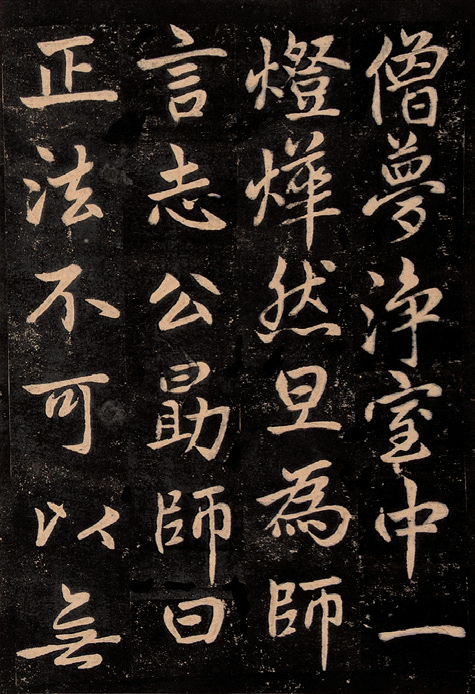 僧夢浄室中一
燈燁然旦為師
言志公勗師曰
正法不可以無